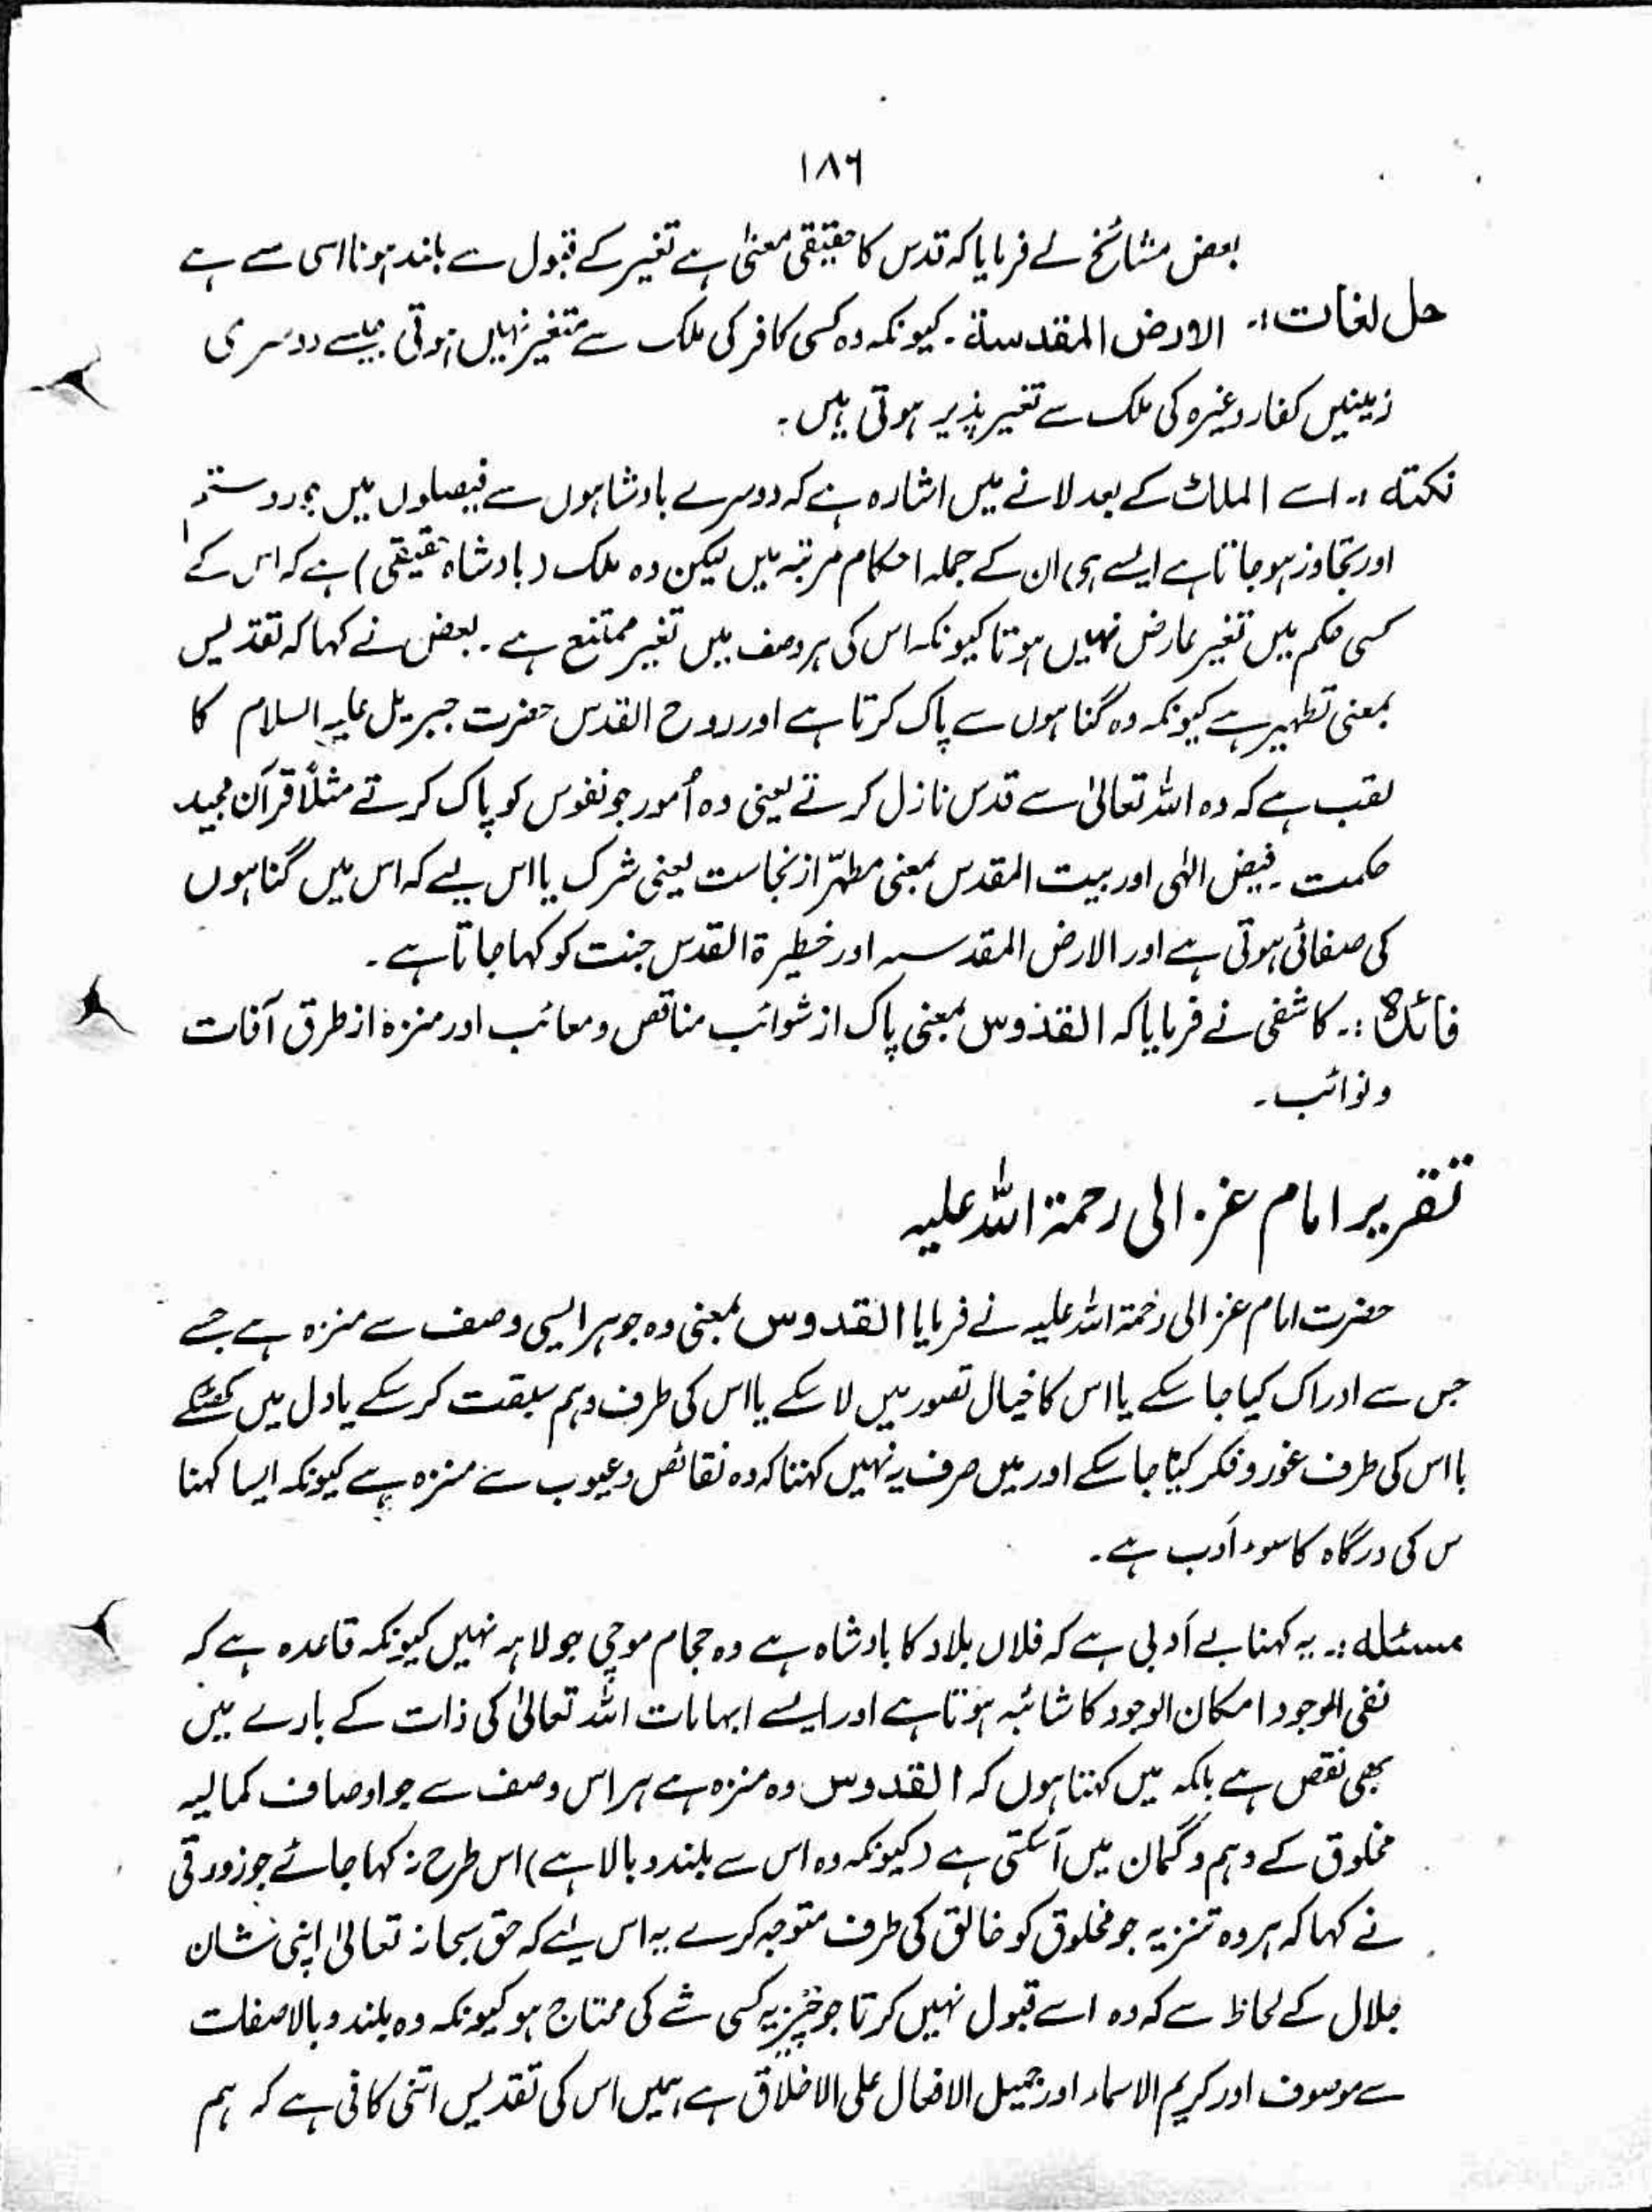 ۱۸۶
بعض مشائخ نے فرمایا کہ قدس کا حقیقی معنیٰ ہے تغیر کے قبول سے بلند ہونا اسی سے ہے
حل لغات:۔ الارض المقدسۃ ۔ کیونکہ وہ کسی کافر کی ملک سے متغیر نہیں ہوتی جیسے دوسری
زمینیں کفار وغیرہ کی ملک سے تغیر پذیر ہوتی ہیں ۔
نکتہ :۔ اسے الملک کے بعد لانے میں اشارہ ہے کہ دوسرے بادشاہوں سے فیصلوں میں جور و ستم
اور تجاوز ہو جاتا ہے ایسے ہی ان کے جملہ احکام مرتبہ میں لیکن وہ ملک (بادشاہ حقیقی) ہے کہ اس کے
کسی حکم میں تغیر عارض نہیں ہوتا کیونکہ اس کی ہر وصف میں تغیر ممتنع ہے ۔ بعض نے کہا کہ تقدیس
بمعنی تطہیر ہے کیونکہ وہ گناہوں سے پاک کرتا ہے اور روح القدس حضرت جبریل علیہ السلام کا
لقب ہے کہ وہ اللہ تعالیٰ سے قدس نازل کرتے یعنی وہ اُمور جو نفوس کو پاک کرتے مثلاً قرآن مجید
حکمت ۔ فیض الٰہی اور بیت المقدس بمعنی مطہّر از نجاست یعنی شرک یا اس لیے کہ اس میں گناہوں
کی صفائی ہوتی ہے اور الارض المقدسہ اور خطیرۃ القدس جنت کو کہا جاتا ہے ۔
فائدہ :۔ کاشفی نے فرمایا کہ القدوس بمعنی پاک از شوائب مناقص و معائب اور منزہ از طرق آفات
و نوائب ۔
تقریر امام غزالی رحمۃ اللہ علیہ
حضرت امام غزالی رحمۃ اللہ علیہ نے فرمایا القدوس بمعنی وہ جو ہر ایسی وصف سے منزہ ہے جسے
جس سے ادراک کیا جا سکے یا اس کا خیال تصور میں لا سکے یا اس کی طرف وہم سبقت کر سکے یا دل میں کھٹکے
یا اس کی طرف غور و فکر کیا جا سکے اور میں صرف یہ نہیں کہتا کہ وہ نقائص و عیوب سے منزہ ہے کیونکہ ایسا کہنا
س کی درگاہ کا سوء اَدب ہے ۔
مسئلہ :۔ یہ کہنا بے اَدبی ہے کہ فلاں بلاد کا بادشاہ ہے وہ حجام موچی جولاہہ نہیں کیونکہ قاعدہ ہے کہ
نفی الوجود امکان الوجود کا شائبہ ہوتا ہے اور ایسے ابہامات اللہ تعالیٰ کی ذات کے بارے میں
بھی نقص ہے بلکہ میں کہتا ہوں کہ القدوس وہ منزہ ہے ہر اس وصف سے جو اوصاف کمالیہ
مخلوق کے وہم و گمان میں آسکتی ہے (کیونکہ وہ اس سے بلند و بالا ہے) اس طرح نہ کہا جائے جو زورقی
نے کہا کہ ہر وہ تنزیہ جو مخلوق کو خالق کی طرف متوجہ کرے یہ اس لیے کہ حق سبحانہ تعالیٰ اپنی شان
جلال کے لحاظ سے کہ وہ اسے قبول نہیں کرتا جو تنزیہ کسی شے کی محتاج ہو کیونکہ وہ بلند و بالا صفات
سے موصوف اور کریم الاسماء اور جمیل الافعال علی الاطلاق ہے ہمیں اس کی تقدیس اتنی کافی ہے کہ ہم